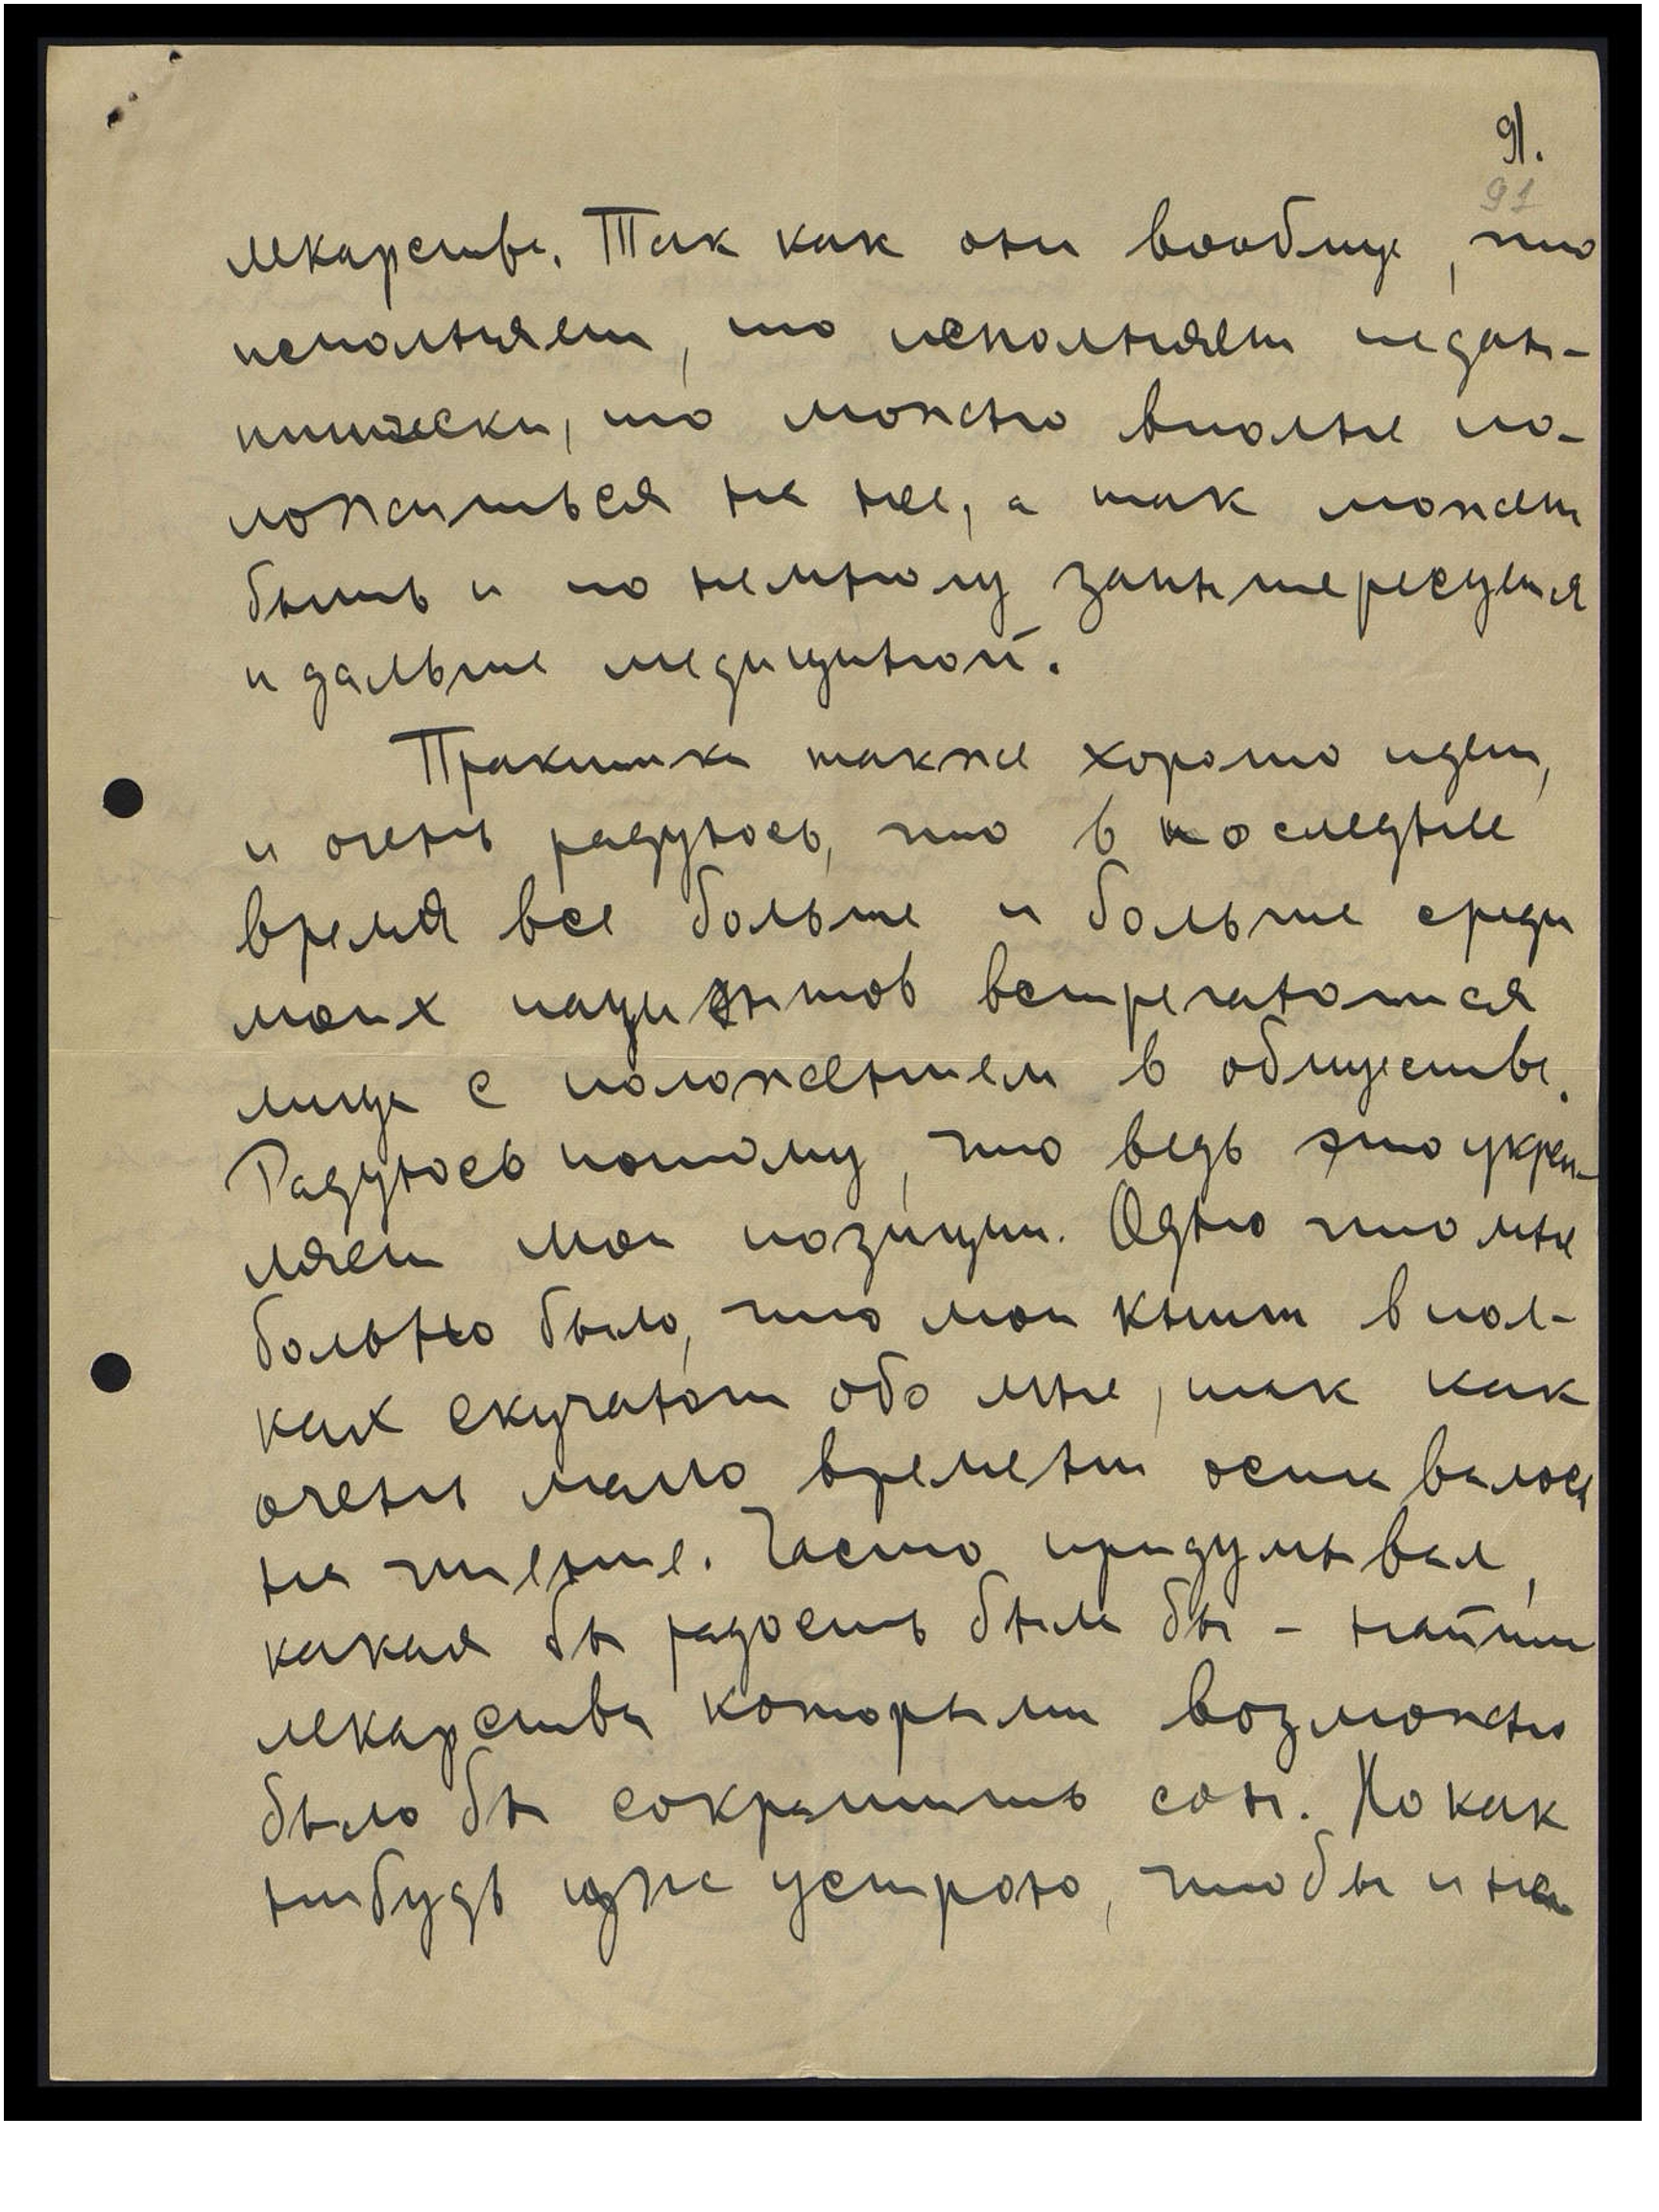 91.
91
лекарства. Так как она вообще, что
исполняет, то исполняет педан-
тически, то можно вполне по-
ложиться на нее, а так может
быть и по немногу заинтересуется
и дальше медициной.
Практика также хорошо идет,
и очень радуюсь, что в последнее
время все больше и больше среди
моих пациентов встречаются
лица с положением в обществе.
Радуюсь потому, что ведь это укреп-
ляет мои позиции. Одно что мне
больно было, что мои книги в пол-
ках скучают обо мне, так как
очень мало времени оставалось
на чтение. Часто придумывал,
какая бы радость была бы – найти
лекарства которыми возможно
было бы сократить сон. Но как
нибудь уже устрою, чтобы и на